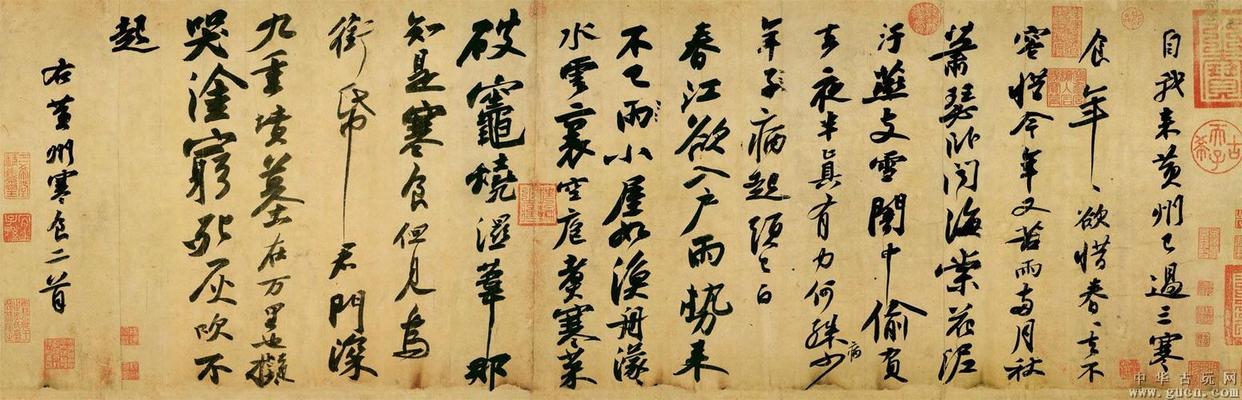 自我来黄州已過三寒
食年〻欲惜春〻去不
容惜今年又苦雨兩月秋
蕭瑟卧聞海棠花泥
汙燕支雪闇中偷負
去夜半真有力何殊少
病
年子病起頭已白
春江欲入戶雨勢来
不已雨小屋如漁舟濛〻
水雲裏空庖煮寒菜
破竈燒濕葦那
知是寒食但見烏
銜帋君門深
九重墳墓在万里也擬
哭塗窮死灰吹不
起
右黄州寒食二首
古希天子
中华古玩网
www.gucn.com